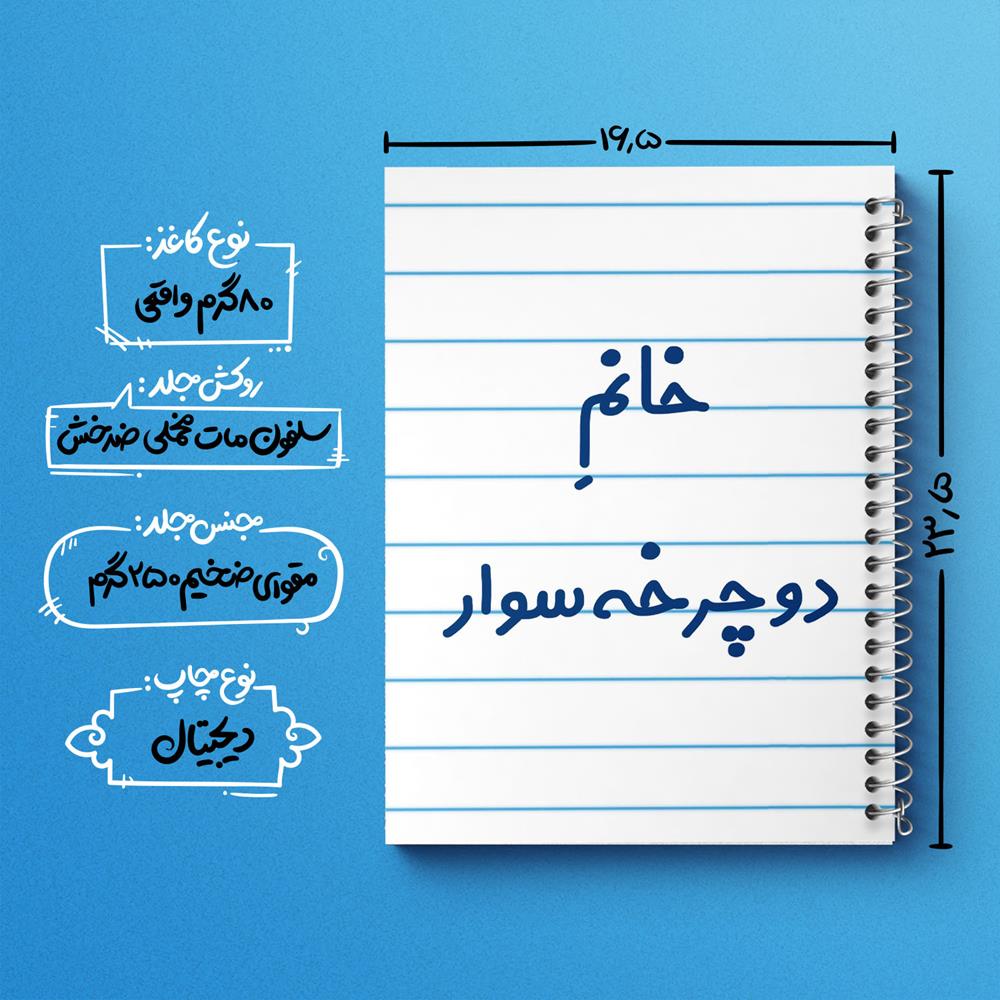 ۱۶٫۵
۲۳٫۵
خانمِ
دوچرخه سوار
نوع کاغذ:
۸۰ گرم واقعی
روکش جلد:
سلفون مات مخملی ضدخش
جنس جلد:
مقوای ضخیم ۲۵۰ گرم
نوع چاپ:
دیجیتال